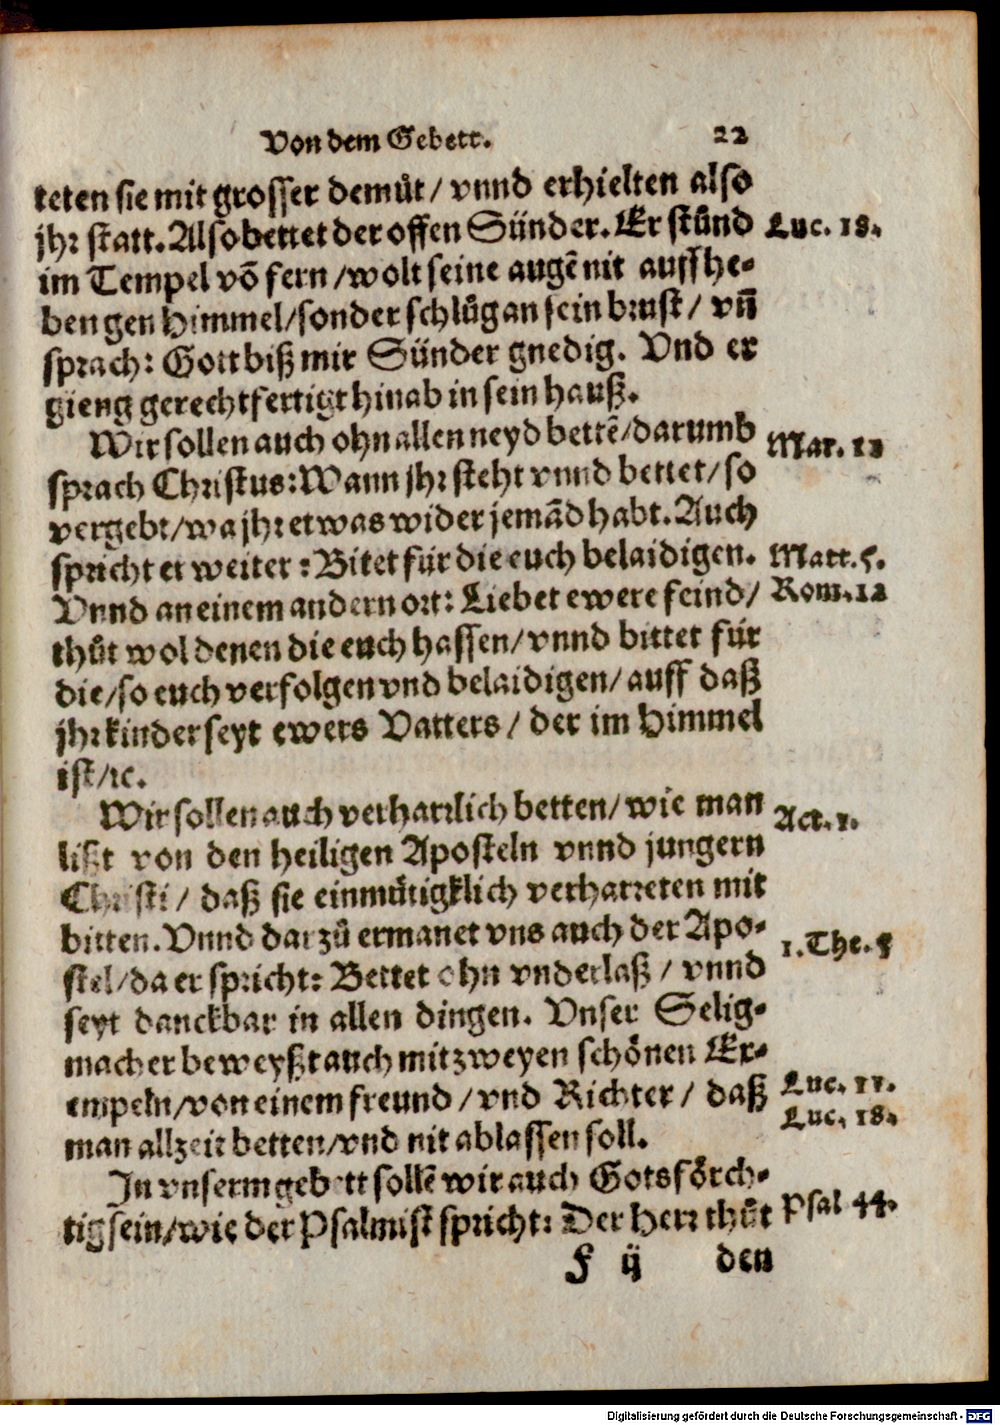 Von dem Gebett. 22
teten sie mit grosser demůt / vnnd erhielten also
jhr statt. Also bettet der offen Sünder. Er stůnd Luc. 18.
im Tempel võ fern / wolt seine augẽ nit auffhe-
ben gen Himmel / sonder schlůg an sein brust / vñ
sprach: Gott biß mir Sünder gnedig. Vnd er
gieng gerechtfertigt hinab in sein hauß.
Wir sollen auch ohn allen neyd bettẽ / darumb Mar. 11
sprach Christus: Wann jhr steht vnnd bettet / so
vergebt / wa jhr etwas wider jemãd habt. Auch
spricht er weiter: Bitet für die euch belaidigen. Matt. 5.
Vnnd an einem andern ort: Liebet ewere feind / Rom. 12
thůt wol denen die euch hassen / vnnd bittet für
die / so euch verfolgen vnd belaidigen / auff daß
jhr kinder seyt ewers Vatters / der im Himmel
ist / ꝛc.
Wir sollen auch verharrlich betten / wie man Act. 1.
lißt von den heiligen Aposteln vnnd jungern
Christi / daß sie einmůtigklich verharreten mit
bitten. Vnnd darzů ermanet vns auch der Apo- 1. The. 5
stel / da er spricht: Bettet ohn vnderlaß / vnnd
seyt danckbar in allen dingen. Vnser Selig-
macher beweyßt auch mit zweyen schönen Ex-
empeln / von einem freund / vnd Richter / daß Luc. 11.
man allzeit betten / vnd nit ablassen soll. Luc. 18.
In vnserm gebett sollẽ wir auch Gotsförch-
tig sein / wie der Psalmist spricht: Der Herr thůt Psal 44.
F ij den
Digitalisierung gefördert durch die Deutsche Forschungsgemeinschaft - DFG